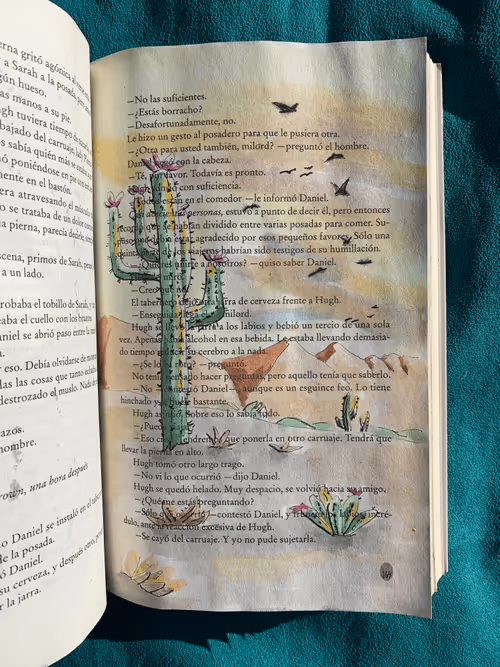 erna gritó agónica
a Sarah a la posada,
gún hueso.
as manos a su pie.
gh tuviera tiempo de
bajado del carruaje,
os sabía quién más se
ó poniéndose en pie
mente en el bastón.
era atravesando el
o se trataba de un dolor
la pierna, parecía decirle,
scena, primos de Sarah,
a un lado.
robaba el tobillo de Sarah,
eaba el cuello con los brazos.
niel se abrió paso entre la
a.
r eso. Debía olvidarse de
das las cosas que tanto
destrozado el muslo. Nada de
azos.
hombre.
rown, una hora después
o Daniel se instaló en el
de la posada.
tó Daniel.
su cerveza, y después otro,
r la jarra.
—No las suficientes.
—¿Estás borracho?
—Desafortunadamente, no.
Le hizo un gesto al posadero para que le pusiera otra.
—¿Otra para usted también, milord? —preguntó el hombre.
Daniel negó con la cabeza.
—Té, por favor. Todavía es pronto.
Hugh sonrió con suficiencia.
—Todos están en el comedor —le informó Daniel.
personas, estuvo a punto de decir él, pero entonces
recordó que se habían dividido entre varias posadas para comer. Su-
puso que debía estar agradecido por esos pequeños favores. Sólo una
quinta parte de los viajeros habrían sido testigos de su humillación.
—¿Quieres unirte a nosotros? —quiso saber Daniel.
—Creo
El tabernero dejó otra jarra de cerveza frente a Hugh.
—Enseguida milord.
Hugh se llevó la jarra a los labios y bebió un tercio de una sola
vez. Apenas alcohol en esa bebida. Le estaba llevando demasia-
do tiempo cerebro a la nada.
—¿Se lo —preguntó.
No tenía pensado hacer preguntas, pero aquello tenía que saberlo.
—No —contestó Daniel—, aunque es un esguince feo. Lo tiene
hinchado y bastante.
Hugh asintió. Sobre eso lo sabía todo.
—¿Puede
—Eso creo. Tendremos que ponerla en otro carruaje. Tendrá que
llevar la pierna en alto.
Hugh tomó otro largo trago.
—No vi lo que ocurrió —dijo Daniel.
Hugh se quedó helado. Muy despacio, se volvió hacia su amigo.
—¿Qué me estás preguntando?
—Sólo qué ocurrió —contestó Daniel, y frunció los labios incré-
dulo, ante la reacción excesiva de Hugh.
—Se cayó del carruaje. Y yo no pude sujetarla.